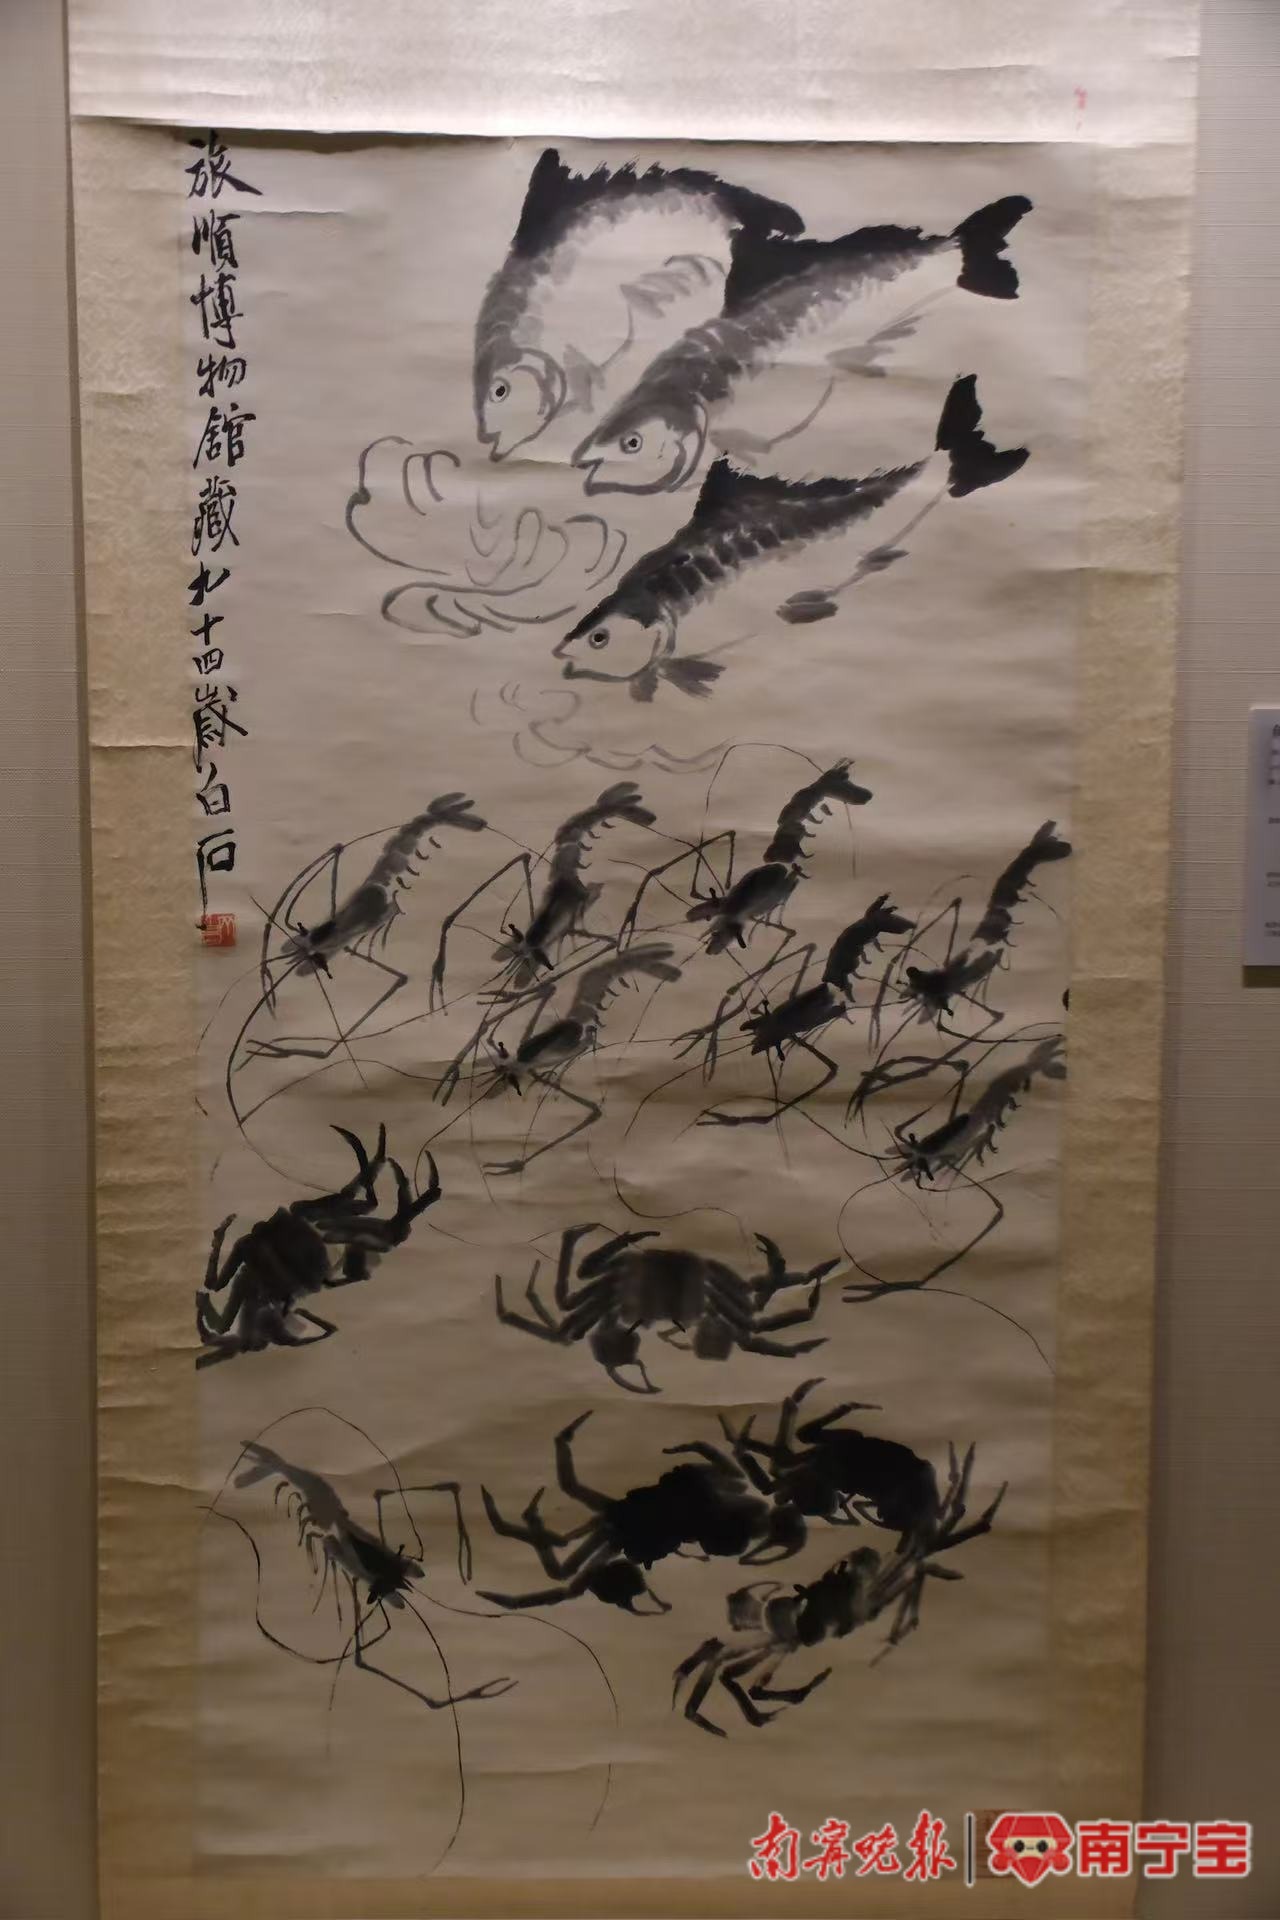 旅順博物館藏九十四歲白石
南宁晚报
南宁宝